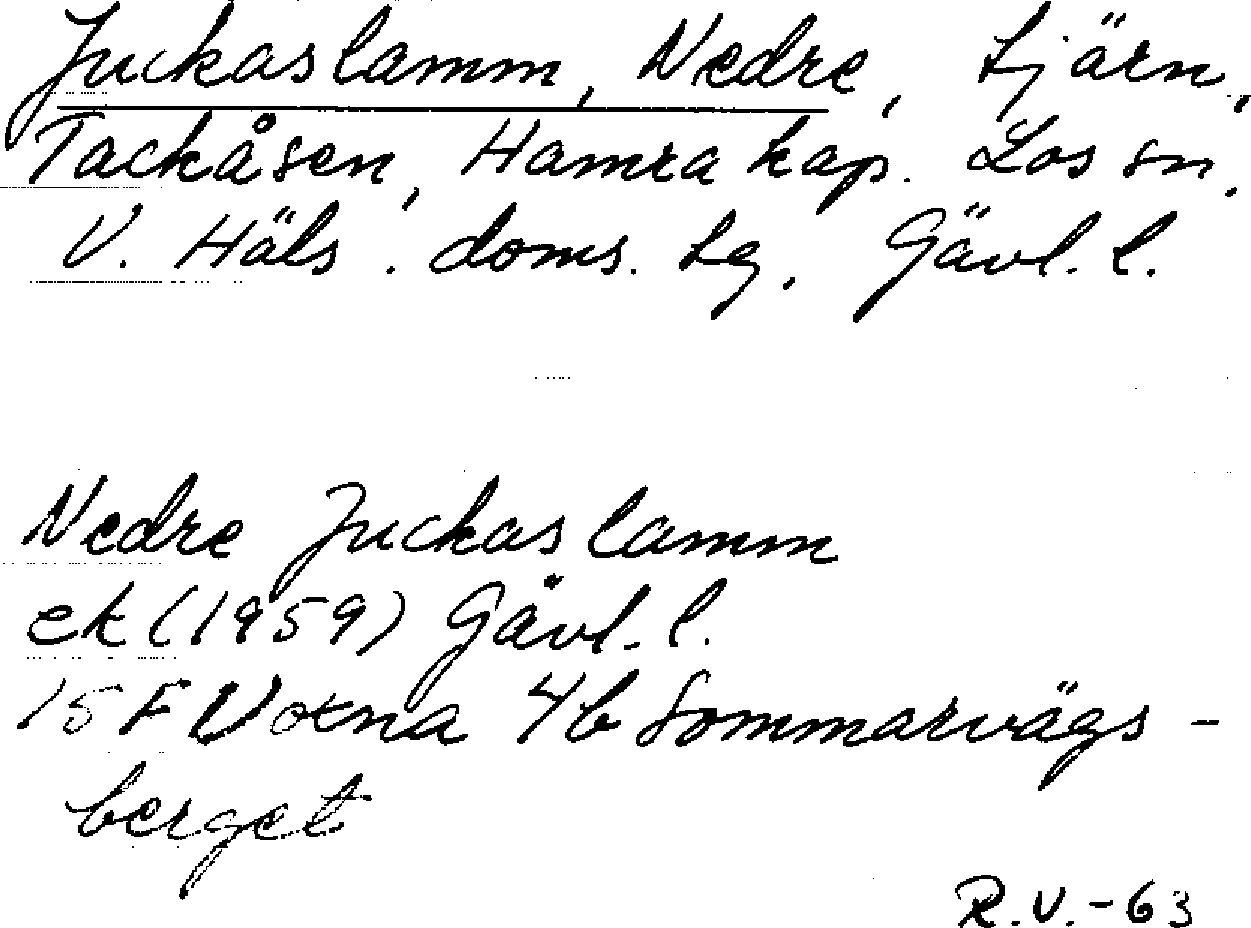 Juckaslamm, Nedre, tjärn,
Tackåsen, Hamra kap. Los sn.
V. Häls. doms. tg, Gävl. l.
Nedre Juckaslamm
ek (1959) Gävl. l.
15 F Voxna 4b Sommarvägs-
berget
R.V.-63